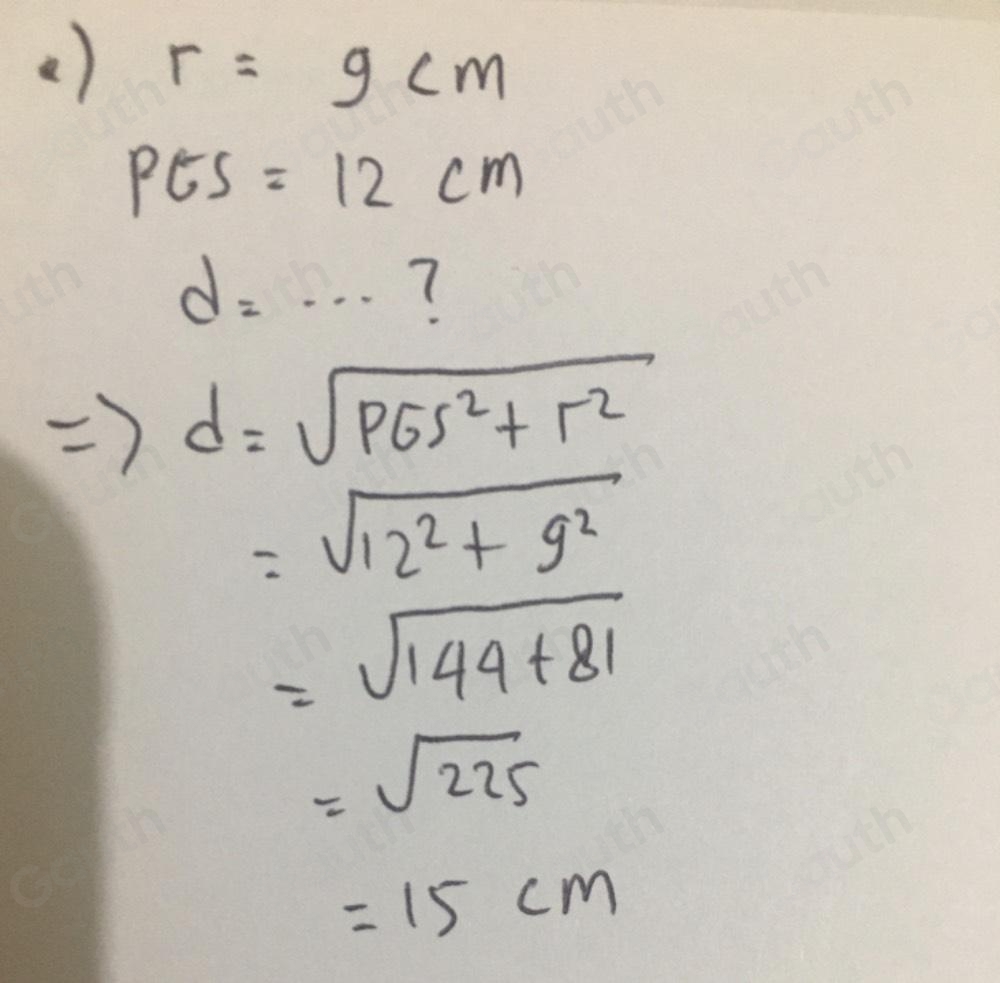 •) r = 9 cm
PGS = 12 cm
d = ... ?
=> d = √(PGS² + r²)
= √(12² + 9²)
= √(144 + 81)
= √225
= 15 cm